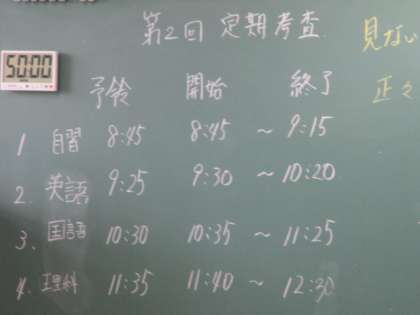 第2回 定期考査
見ない
50:00
予鈴 開始 終了
正々
1 自習 8:45 8:45 ~ 9:15
2. 英語 9:25 9:30 ~ 10:20
3. 国語 10:30 10:35 ~ 11:25
4. 理科 11:35 11:40 ~ 12:30